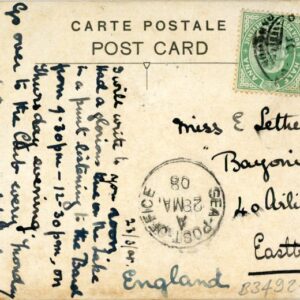 CARTE POSTALE
POST CARD
Miss E Lethe
"Bayoni
40 Aili
Eastb
England
B3492
SEA-POST-OFFICE
A
28 MA
08
ANNA
28/3/08
I will write to you soon
Had a glorious time on the Lake
in a punt listening to the Band
from 9-30pm - 12-30pm, on
Thursday evening.
Go over to the Club every